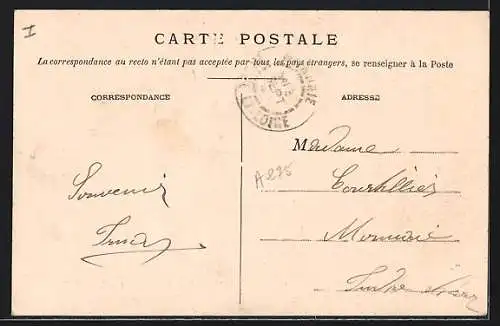 I
CARTE POSTALE
La correspondance au recto n'étant pas acceptée par tous les pays étrangers, se renseigner à la Poste
CORRESPONDANCE
ADRESSE
LOIRE
Madame
A 295
Souvenir
Indre et Loire